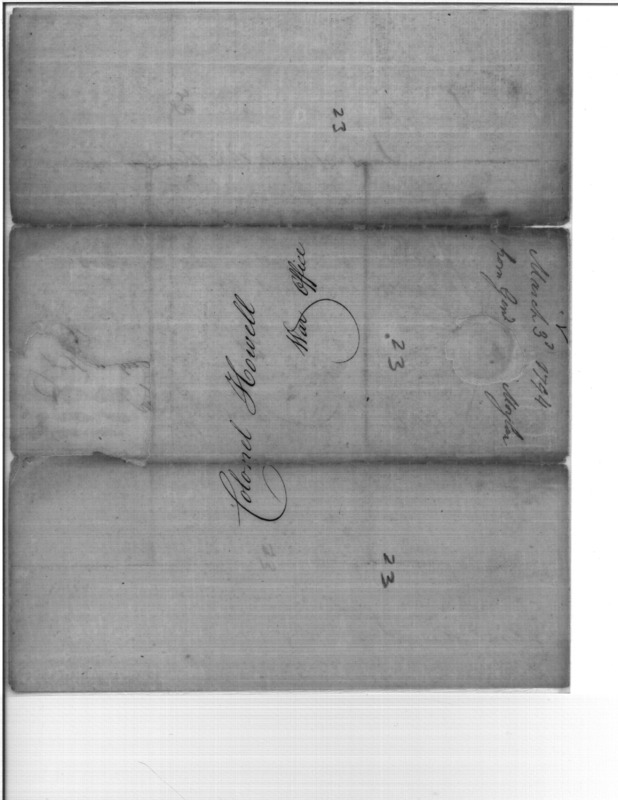 23
Colonel Howell
War Office
23
March 3d 1794
from Genl
23
23